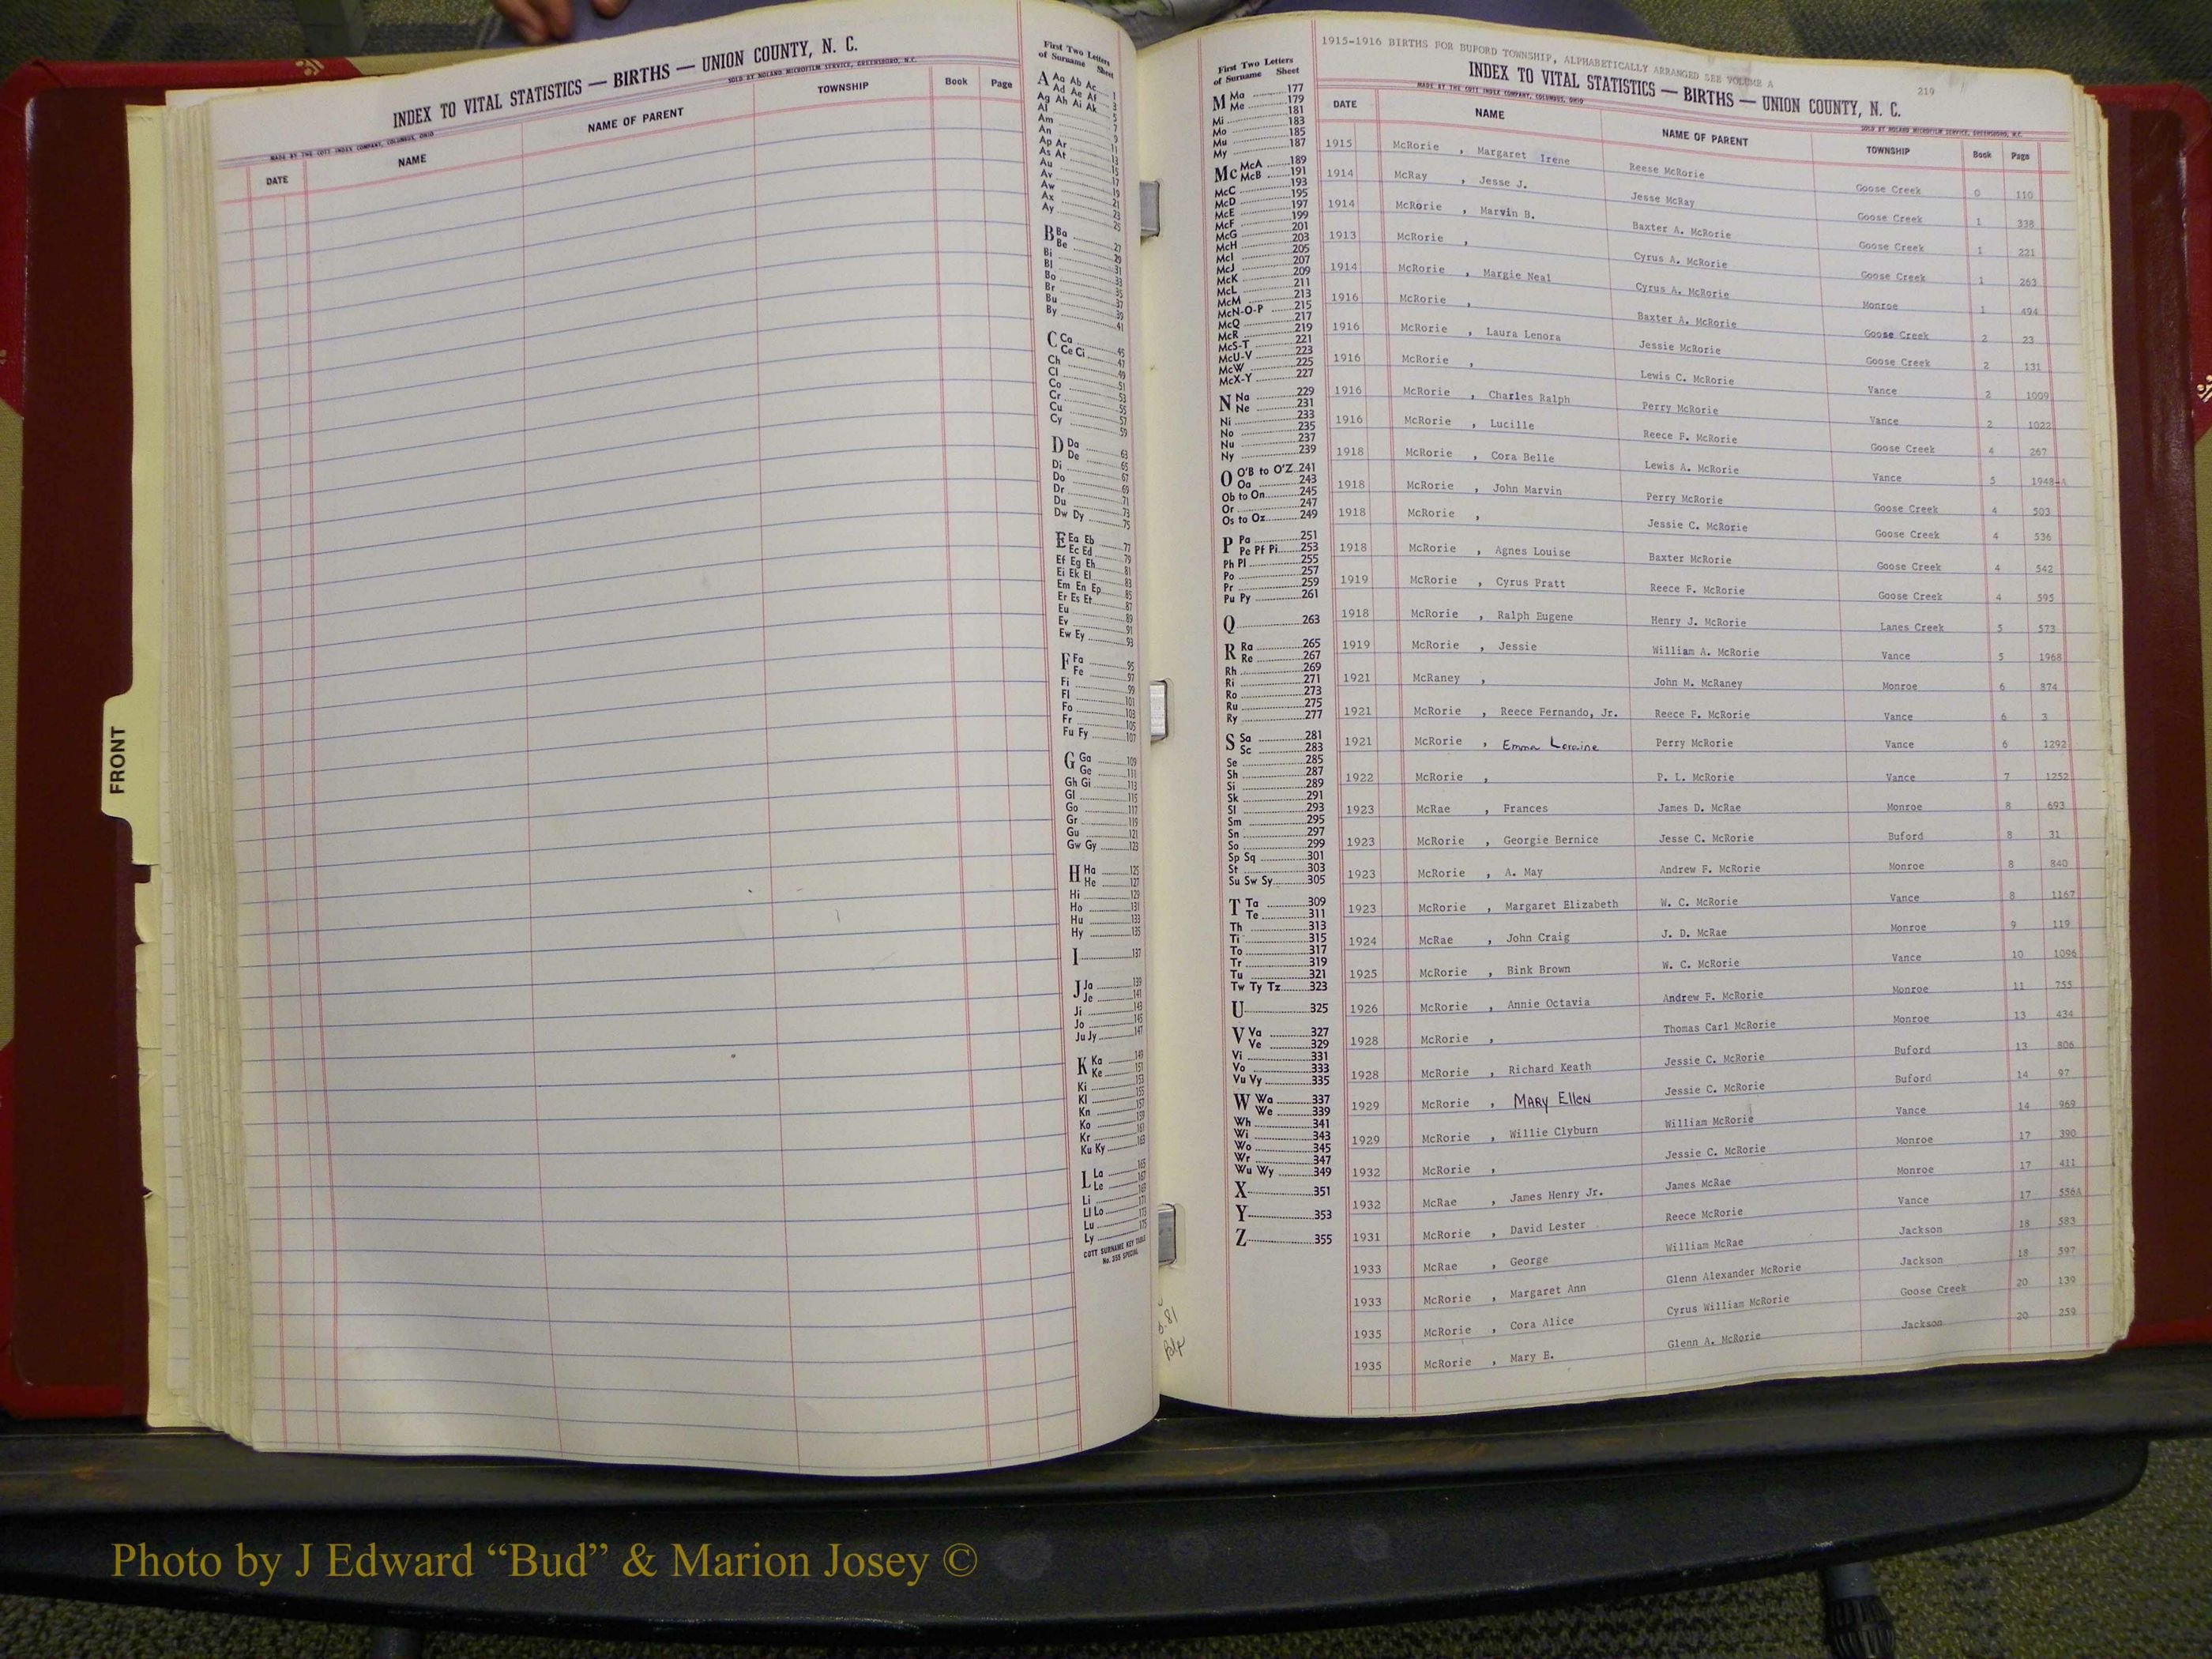 INDEX TO VITAL STATISTICS — BIRTHS — UNION COUNTY, N. C.
MADE BY THE COTT INDEX COMPANY, COLUMBUS, OHIO SOLD BY NOLAND MICROFILM SERVICE, GREENSBORO, N.C.
DATE NAME NAME OF PARENT TOWNSHIP Book Page
FRONT
First Two Letters
of Surname Sheet
A Aa Ab Ac 1
Ad Ae Af 3
Ag Ah Ai Ak 5
Al 7
Am 9
An 11
Ap Ar 13
As At 15
Au 17
Av 19
Aw 21
Ax 23
Ay 25
B Ba 27
Be 29
Bi 31
Bl 33
Bo 35
Br 37
Bu 39
By 41
C Ca 45
Ce Ci 47
Ch 49
Cl 51
Co 53
Cr 55
Cu 57
Cy 59
D Da 63
De 65
Di 67
Do 69
Dr 71
Du 73
Dw Dy 75
E Ea Eb 77
Ec Ed 79
Ef Eg Eh 81
Ei Ek El 83
Em En Ep 85
Er Es Et 87
Eu 89
Ev 91
Ew Ey 93
F Fa 95
Fe 97
Fi 99
Fl 101
Fo 103
Fr 105
Fu Fy 107
G Ga 109
Ge 111
Gh Gi 113
Gl 115
Go 117
Gr 119
Gu 121
Gw Gy 123
H Ha 125
He 127
Hi 129
Ho 131
Hu 133
Hy 135
I 137
J Ja 139
Je 141
Ji 143
Jo 145
Ju Jy 147
K Ka 149
Ke 151
Ki 153
Kl 155
Kn 157
Ko 159
Kr 161
Ku Ky 163
L La 165
Le 167
Li 169
Ll Lo 171
Lu 173
Ly 175
COTT SURNAME KEY TABLE
No. 355 SPECIAL
First Two Letters
of Surname Sheet
M Ma 177
Me 179
Mi 181
Mo 183
Mu 185
My 187
Mc McA 189
McB 191
McC 193
McD 195
McE 197
McF 199
McG 201
McH 203
McI 205
McJ 207
McK 209
McL 211
McM 213
McN-O-P 215
McQ 217
McR 219
McS-T 221
McU-V 223
McW 225
McX-Y 227
N Na 229
Ne 231
Ni 233
No 235
Nu 237
Ny 239
O O'B to O'Z 241
Oa 243
Ob to On 245
Or 247
Os to Oz 249
P Pa 251
Pe Pf Pi 253
Ph Pl 255
Po 257
Pr 259
Pu Py 261
Q 263
R Ra 265
Re 267
Rh 269
Ri 271
Ro 273
Ru 275
Ry 277
S Sa 281
Sc 283
Se 285
Sh 287
Si 289
Sk 291
Sl 293
Sm 295
Sn 297
So 299
Sp Sq 301
St 303
Su Sw Sy 305
T Ta 309
Te 311
Th 313
Ti 315
To 317
Tr 319
Tu 321
Tw Ty Tz 323
U 325
V Va 327
Ve 329
Vi 331
Vo 333
Vu Vy 335
W Wa 337
We 339
Wh 341
Wi 343
Wo 345
Wr 347
Wu Wy 349
X 351
Y 353
Z 355
1915-1916 BIRTHS FOR BUFORD TOWNSHIP, ALPHABETICALLY ARRANGED SEE VOLUME A
219
INDEX TO VITAL STATISTICS — BIRTHS — UNION COUNTY, N. C.
MADE BY THE COTT INDEX COMPANY, COLUMBUS, OHIO SOLD BY NOLAND MICROFILM SERVICE, GREENSBORO, N.C.
DATE NAME NAME OF PARENT TOWNSHIP Book Page
1915 McRorie , Margaret Irene Reese McRorie Goose Creek 0 110
1914 McRay , Jesse J. Jesse McRay Goose Creek 1 338
1914 McRorie , Marvin B. Baxter A. McRorie Goose Creek 1 221
1913 McRorie , Cyrus A. McRorie Goose Creek 1 263
1914 McRorie , Margie Neal Cyrus A. McRorie Monroe 1 494
1916 McRorie , Baxter A. McRorie Goose Creek 2 23
1916 McRorie , Laura Lenora Jessie McRorie Goose Creek 2 131
1916 McRorie , Lewis C. McRorie Vance 2 1009
1916 McRorie , Charles Ralph Perry McRorie Vance 2 1022
1916 McRorie , Lucille Reece F. McRorie Goose Creek 4 267
1918 McRorie , Cora Belle Lewis A. McRorie Vance 5 1948-A
1918 McRorie , John Marvin Perry McRorie Goose Creek 4 503
1918 McRorie , Jessie C. McRorie Goose Creek 4 536
1918 McRorie , Agnes Louise Baxter McRorie Goose Creek 4 542
1919 McRorie , Cyrus Pratt Reece F. McRorie Goose Creek 4 595
1918 McRorie , Ralph Eugene Henry J. McRorie Lanes Creek 5 573
1919 McRorie , Jessie William A. McRorie Vance 5 1968
1921 McRaney , John M. McRaney Monroe 6 874
1921 McRorie , Reece Fernando, Jr. Reece F. McRorie Vance 6 3
1921 McRorie , Emma Loraine Perry McRorie Vance 6 1292
1922 McRorie , P. L. McRorie Vance 7 1252
1923 McRae , Frances James D. McRae Monroe 8 693
1923 McRorie , Georgie Bernice Jesse C. McRorie Buford 8 31
1923 McRorie , A. May Andrew F. McRorie Monroe 8 840
1923 McRorie , Margaret Elizabeth W. C. McRorie Vance 8 1167
1924 McRae , John Craig J. D. McRae Monroe 9 119
1925 McRorie , Bink Brown W. C. McRorie Vance 10 1096
1926 McRorie , Annie Octavia Andrew F. McRorie Monroe 11 755
1928 McRorie , Thomas Carl McRorie Monroe 13 434
1928 McRorie , Richard Keath Jessie C. McRorie Buford 13 806
1929 McRorie , MARY EllEN Jessie C. McRorie Buford 14 97
1929 McRorie , Willie Clyburn William McRorie Vance 14 969
1932 McRorie , Jessie C. McRorie Monroe 17 390
1932 McRae , James Henry Jr. James McRae Monroe 17 411
1931 McRorie , David Lester Reece McRorie Vance 17 556A
1933 McRae , George William McRae Jackson 18 583
1933 McRorie , Margaret Ann Glenn Alexander McRorie Jackson 18 597
1935 McRorie , Cora Alice Cyrus William McRorie Goose Creek 20 139
1935 McRorie , Mary E. Glenn A. McRorie Jackson 20 259
Photo by J Edward “Bud” & Marion Josey ©